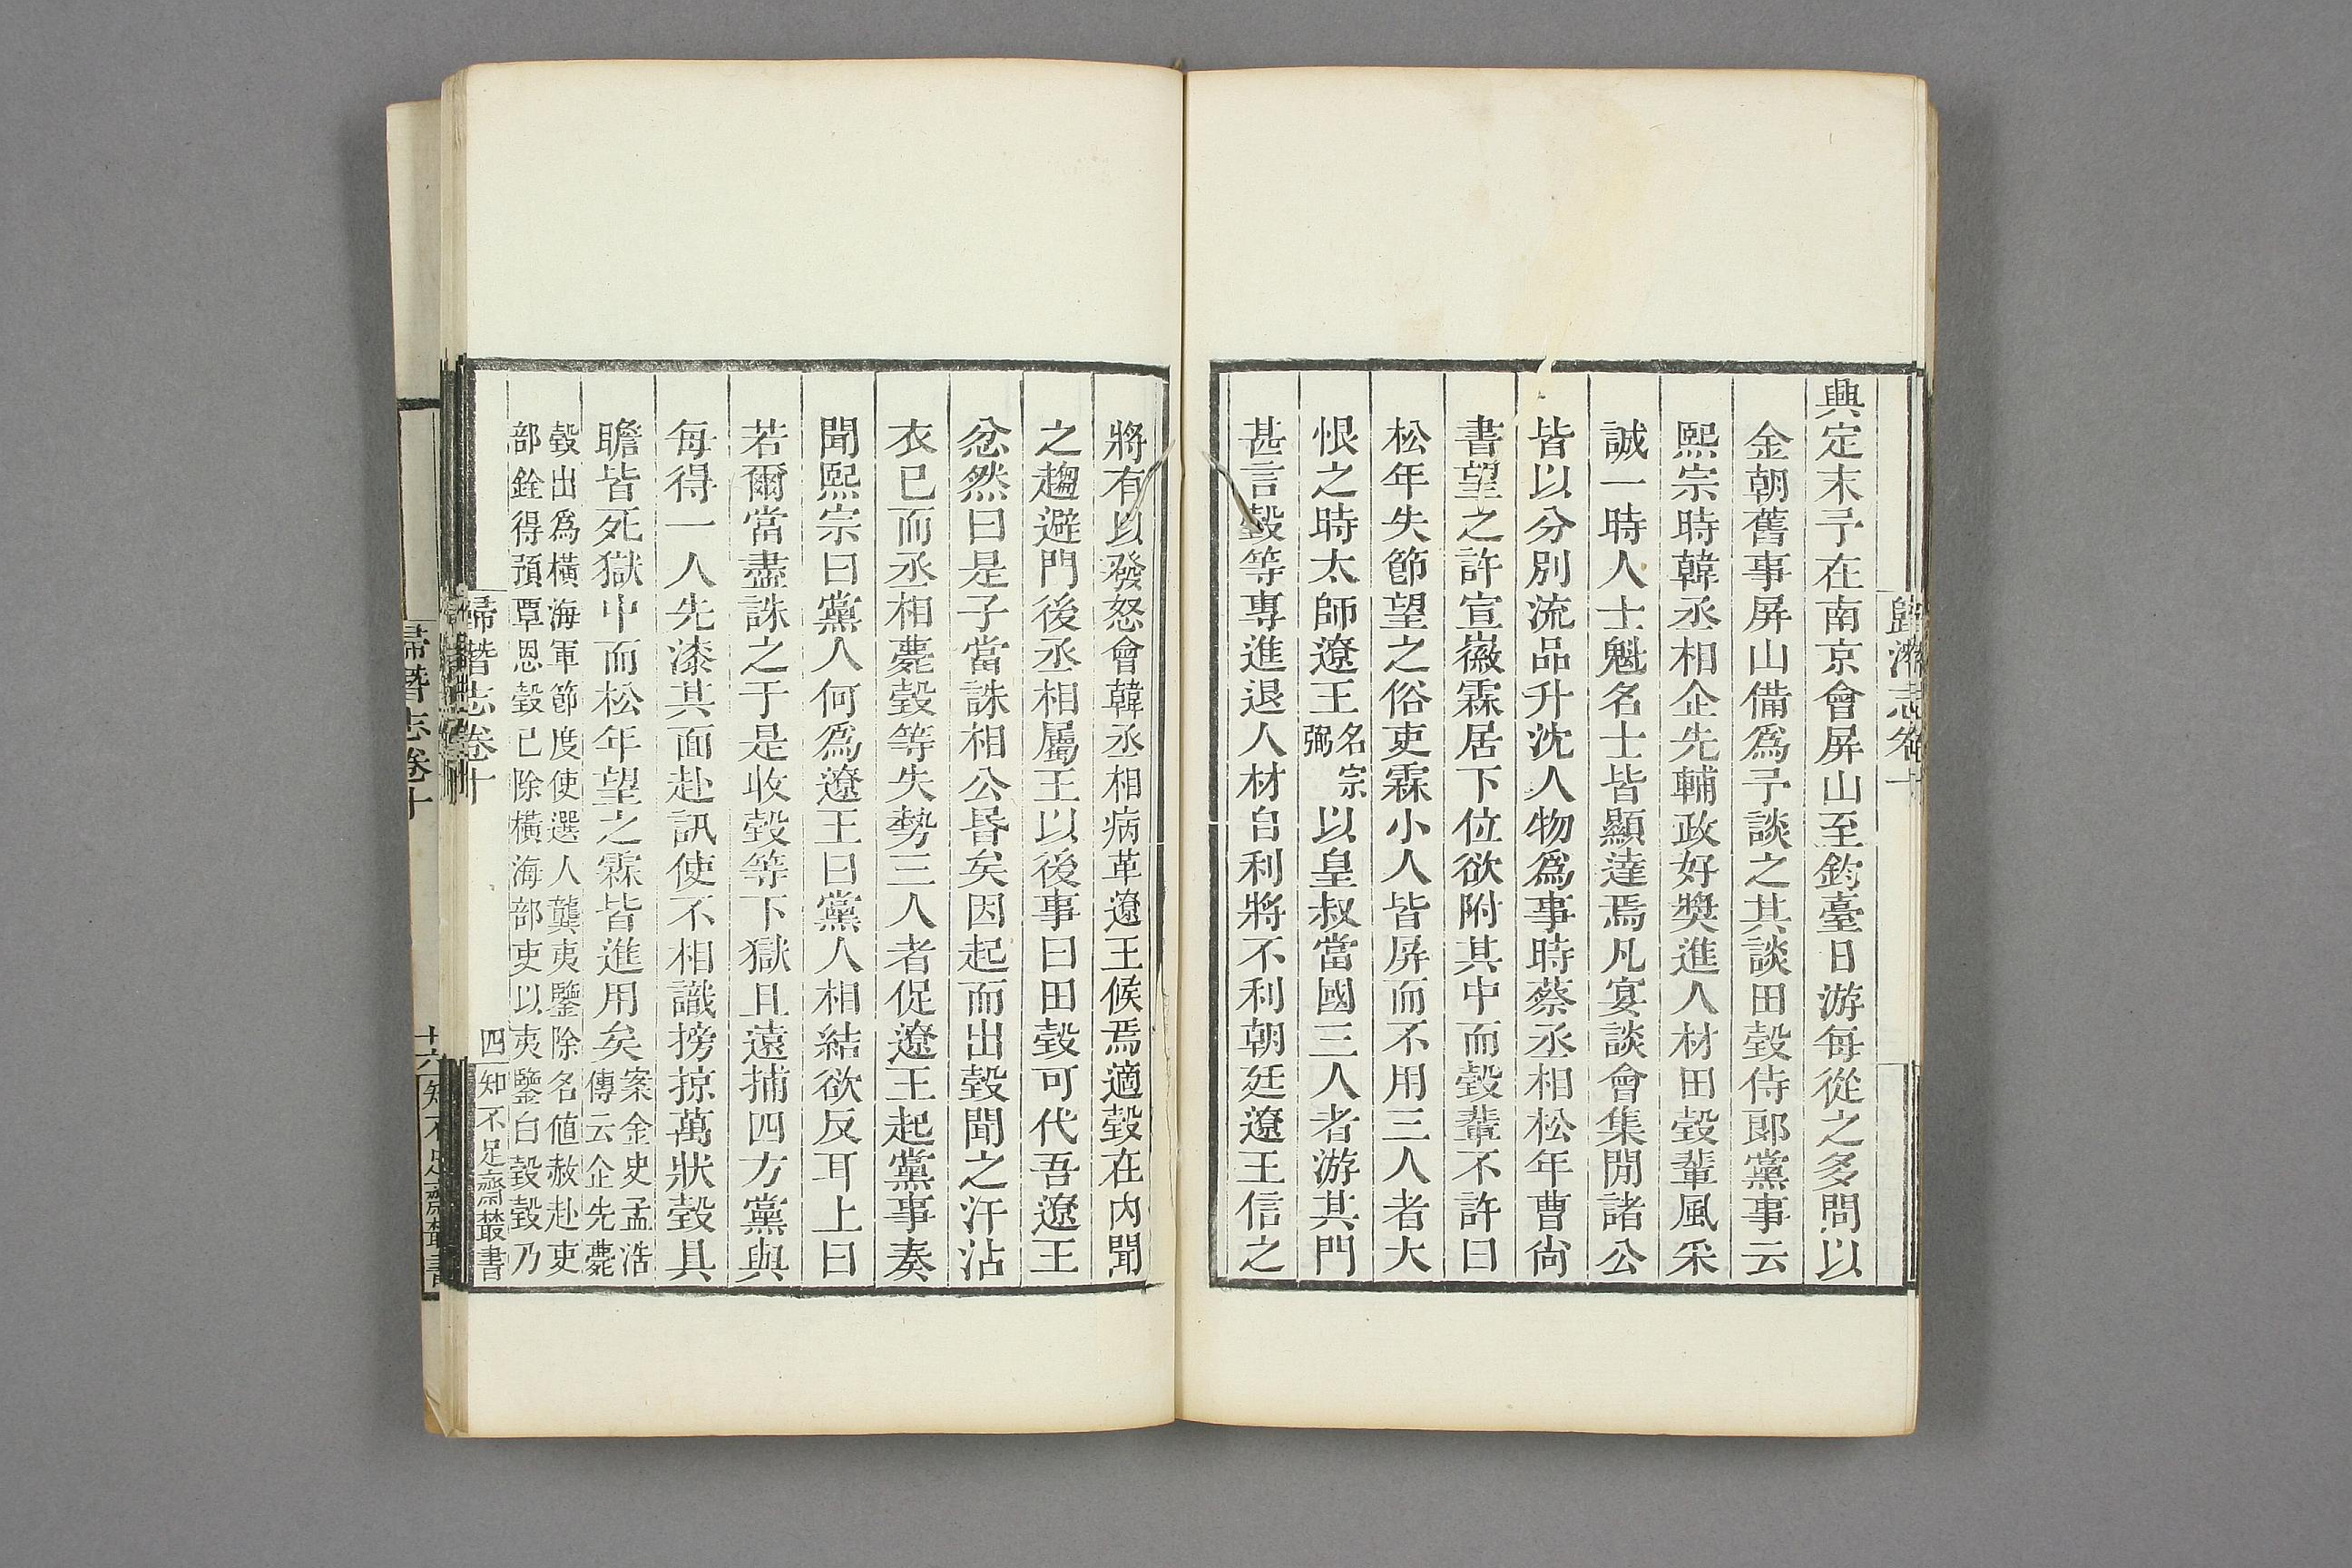 興定末予在南京會屏山至鈞臺日游每從之多問以
金朝舊事屏山備爲予談之其談田瑴侍郎黨事云
熙宗時韓丞相企先輔政好獎進人材田瑴輩風采
誠一時人士魁名士皆顯達焉凡宴談會集閒諸公
皆以分別流品升沈人物爲事時蔡丞相松年曹尙
書望之許宣徽霖居下位欲附其中而瑴輩不許曰
松年失節望之俗吏霖小人皆屏而不用三人者大
恨之時太師遼王名宗弼以皇叔當國三人者游其門
甚言瑴等專進退人材自利將不利朝廷遼王信之
將有以發怒會韓丞相病革遼王候焉適瑴在內聞
之趨避門後丞相屬王以後事曰田瑴可代吾遼王
忿然曰是子當誅相公昬矣因起而出瑴聞之汗沾
衣已而丞相薨瑴等失勢三人者促遼王起黨事奏
聞熙宗曰黨人何爲遼王曰黨人相結欲反耳上曰
若爾當盡誅之于是收瑴等下獄且遠捕四方黨與
每得一人先漆其面赴訊使不相識搒掠萬狀瑴具
瞻皆死獄中而松年望之霖皆進用矣案金史孟浩傳云企先薨
瑴出爲橫海軍節度使選人龔夷鑒除名値赦赴吏
部銓得預覃恩瑴已除橫海部吏以夷鑒白瑴瑴乃
歸潛志卷十
四
知不足齋叢書
歸潛志卷十
十六
知不足齋叢書